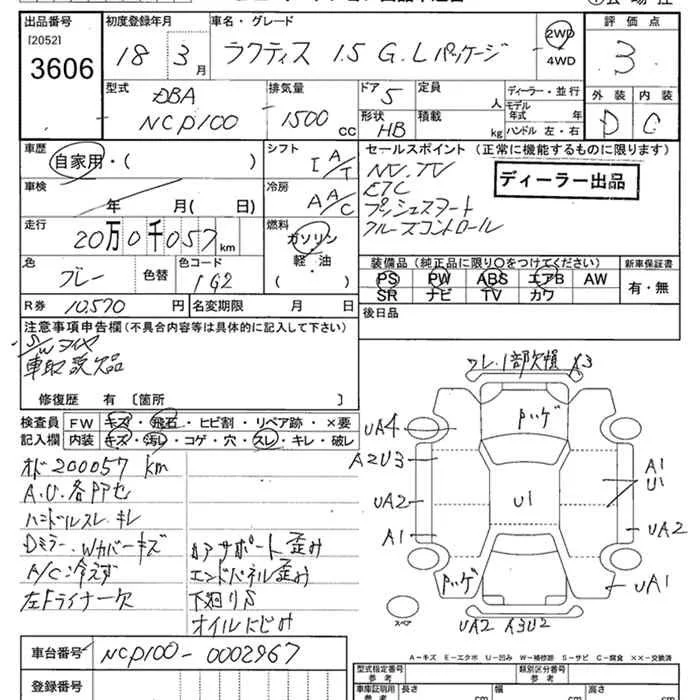 出品番号 初度登録年月 車名・グレード 評価点
[2052] 18年 3月 ラクティス 1.5 G.Lパッケージ 2WD 4WD 3
3606
型式 排気量 ドア 定員 ディーラー・並行 外装 内装
DBA 5 人 モデル年式 年
NCP100 1500cc 形状 HB 積載 kg ハンドル 左・右 D C
車歴 シフト セールスポイント (正常に機能するものに限ります)
自家用・( ) I A/T NV.TV
車検 冷房 ETC ディーラー出品
年 月( 日) A A/C プッシュスタート
走行 燃料 クルーズコントロール
20万0千057km ガソリン
色 色替 色コード 軽・油 装備品 (純正品に限り○をつけてください) 新車保証書
グレー 1G2 ( ) PS PW ABS エアB AW 有・無
R券 10,570円 名変期限 月 日 SR ナビ TV カワ
注意事項申告欄 (不具合内容等は具体的に記入して下さい) 後日品
S/Wタイヤ
車取説欠品
修復歴 有 [箇所 ]
検査員 FW キズ・飛石・ヒビ割・リペア跡・×要
記入欄 内装 キズ・汚レ・コゲ・穴・スレ・キレ・破レ
オド200057km
A.U.各所セ
ハンドルスレ.キレ
Dミラー.Wカバーキズ コアサポート歪み
A/C冷えず エンドパネル歪み
左Fライナー欠 下廻りS
オイルにじみ
グレ.1部欠損 X3
UA4 Pハゲ
A2U3 A1 U1
UA2 U1 UA2
A1
Pハゲ UA1
スペア UA2 A3U2
車台番号 NCP100-0002967
登録番号
A-キズ E-エクボ U-凹み W-補修跡 S-サビ C-腐食 ××-交換済
型式指定番号 参考 類別区分番号 参考
車庫証明用 参考 長さ cm 幅 cm 高さ cm